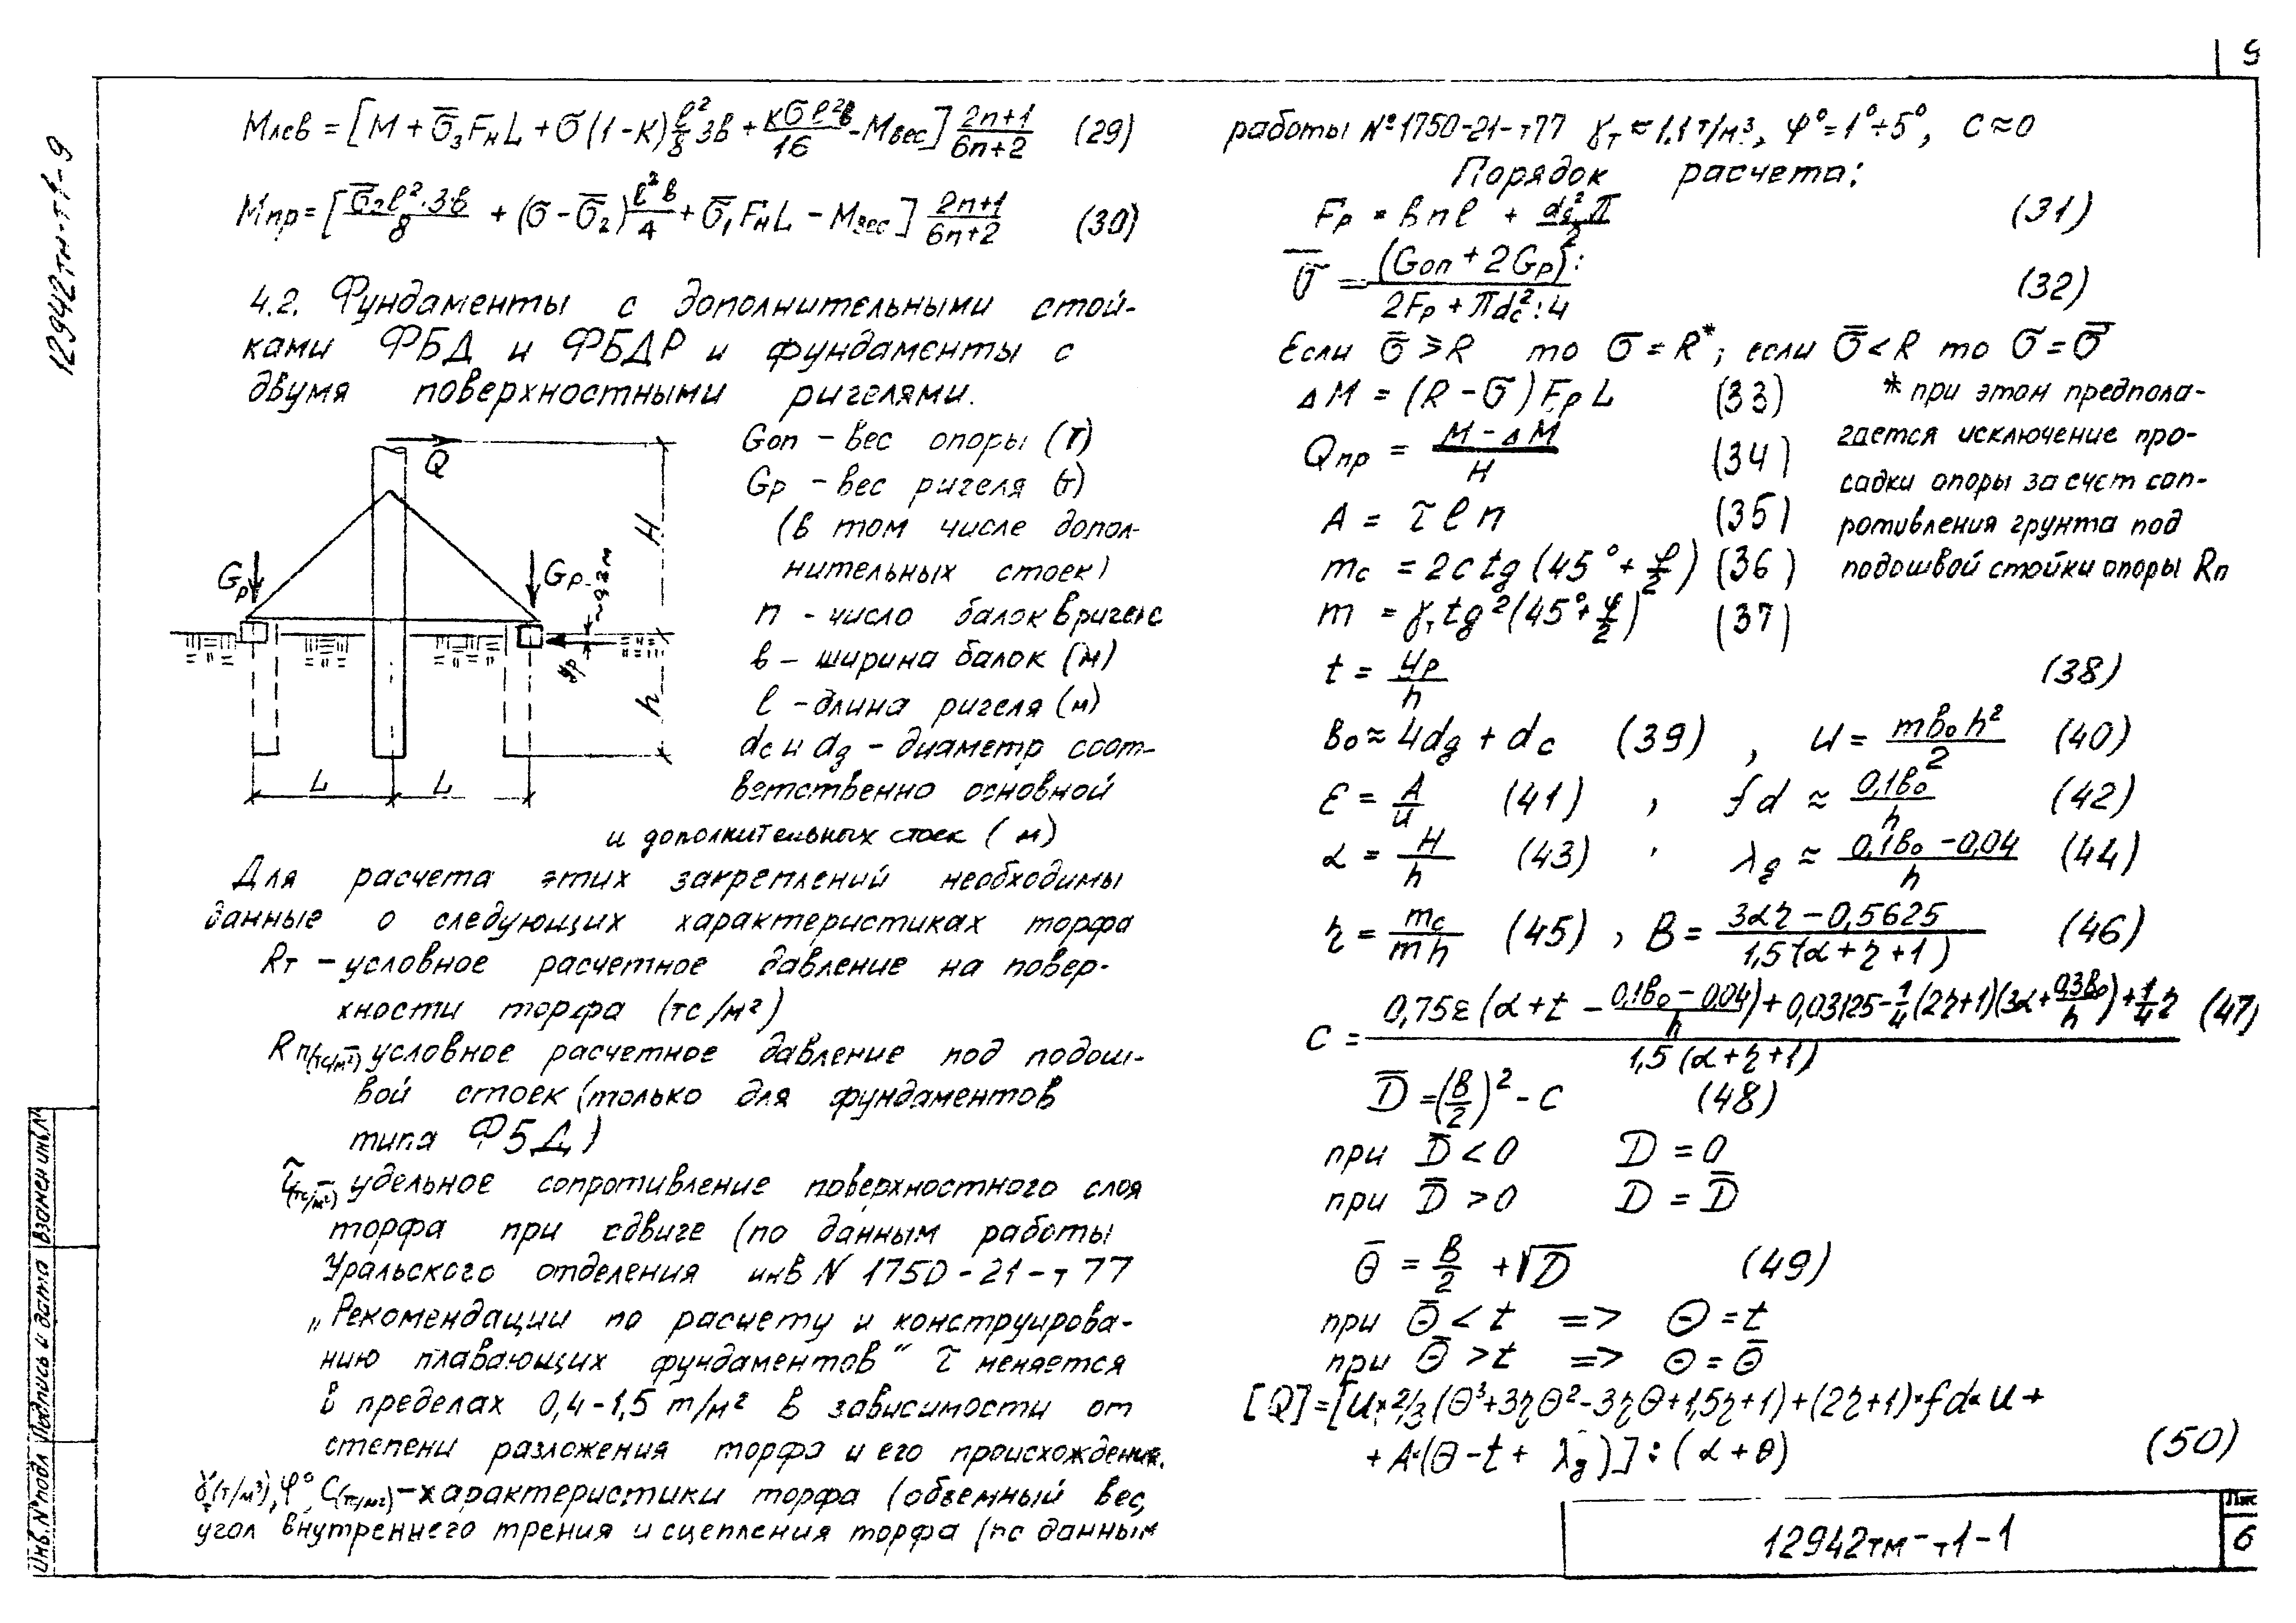 9
12942тм-т1-9
Mлев = [M + σ̄₃FнL + σ(1-K) ℓ²/8 3в + Kσℓ²в/16 - Mвес] (2n+1)/(6n+2) (29)
Mпр = [σ̄₂ℓ²·3в/8 + (σ-σ̄₂) ℓ²в/4 + σ̄₁FнL - Mвес] (2n+1)/(6n+2) (30)
4.2. Фундаменты с дополнительными стой-
ками ФБД и ФБДР и фундаменты с
двумя поверхностными ригелями.
Q
H
Gр
Gр
~0,2м
yр
h
L
L
Gоп - вес опоры (т)
Gр - вес ригеля (т)
(в том числе допол-
нительных стоек)
n - число балок в ригеле
в - ширина балок (м)
ℓ - длина ригеля (м)
dс и dд - диаметр соот-
ветственно основной
и дополнительных стоек (м)
Для расчета этих закреплений необходимы
данные о следующих характеристиках торфа
Rт - условное расчетное давление на повер-
хности торфа (тс/м²)
Rп(тс/м²) - условное расчетное давление под подош-
вой стоек (только для фундаментов
типа ФБД)
τ(тс/м²) - удельное сопротивление поверхностного слоя
торфа при сдвиге (по данным работы
Уральского отделения инв N 1750-21-т77
„Рекомендации по расчету и конструирова-
нию плавающих фундаментов" τ меняется
в пределах 0,4-1,5 т/м² в зависимости от
степени разложения торфа и его происхождения.
γт(т/м³), φ°, C(т/м²) - характеристики торфа (объемный вес,
угол внутреннего трения и сцепления торфа (по данным
работы №1750-21-т77 γт ≈ 1.1 т/м³, φ°=1°÷5°, C≈0
Порядок расчета:
Fр = вnℓ + dд²π/2 (31)
σ̄ = (Gоп + 2Gр) : / 2Fр + πdс²:4 (32)
Если σ̄ ⩾ R то σ = R*; если σ̄ < R то σ = σ̄
ΔM = (R - σ) FрL (33)
* при этом предпола-
гается исключение про-
садки опоры за счет соп-
ротивления грунта под
подошвой стойки опоры Rп
Qпр = (M - ΔM)/H (34)
A = τℓn (35)
mс = 2c tg (45° + φ/2) (36)
m = γт tg²(45° + φ/2) (37)
t = yр/h (38)
вₒ ≈ 4dд + dс (39) , И = mвₒh²/2 (40)
ε = A/И (41) , fd ≈ 0,1вₒ²/h (42)
α = H/h (43) , λд ≈ (0,1вₒ - 0,04)/h (44)
η = mс/mh (45) , B = (3αη - 0,5625)/1,5(α+η+1) (46)
C = 0,75ε(α+t - (0,1вₒ-0,04)/h) + 0,03125 - 1/4(2η+1)(3α + 0,3вₒ/h) + 1/4η / 1,5(α+η+1) (47)
D̄ = (B/2)² - C (48)
при D̄ < 0 D = 0
при D̄ > 0 D = D̄
θ̄ = B/2 + √D (49)
при θ̄ < t => θ = t
при θ̄ > t => θ = θ̄
[Q] = [И×2/3(θ³+3ηθ²-3ηθ+1,5η+1)+(2η+1)×fd×И+
+ A·(θ-t+λд)] : (α+θ) (50)
Инв.№подл
Подпись и дата
Взамен инв.№
12942тм-т1-1
Лис
6